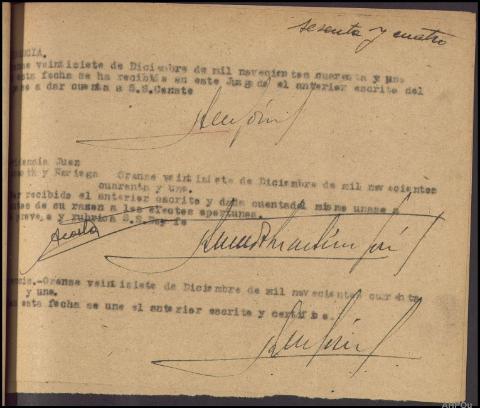 sesenta y cuatro
NCIA.
nse veintisiete de Diciembre de mil novecientos cuarenta y uno
esta fecha se ha recibido en este Juzgado el anterior escrito del
a dar cuenta a S.S.
dencia Juez
y Noriega Orense veintisiete de Diciembre de mil novecientos
cuarenta y uno.
recibido el anterior escrito y dada cuenta del mismo unase a
de su razon a los efectos oportunos.
y rubrica S.S. Doy fe
Acosta
.-Orense veintisiete de Diciembre de mil novecientos cuarenta
y uno.
esta fecha se une el anterior escrito y certifico.
AHPOu